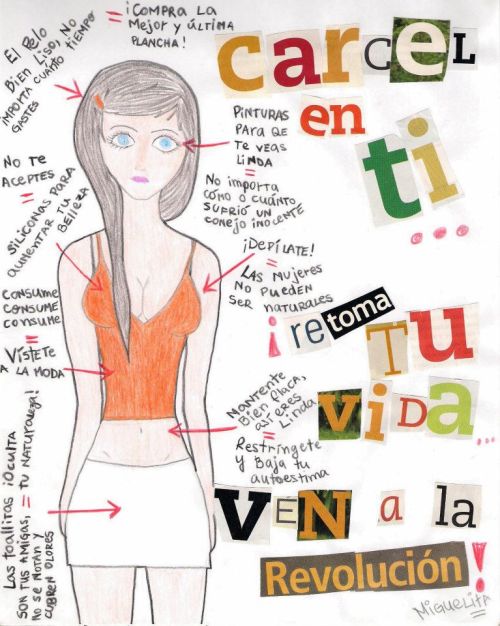 El Pelo
Bien liso, no
importa cuánto tiempo
gastes
=
¡Compra la
Mejor y última
plancha!
carcel
en
ti
...
Pinturas
para qe
te veas
linda
=
No importa
cómo o cuánto
sufrió un
conejo inocente
No te
aceptes
=
Siliconas para
aumentar tu
belleza
¡Depílate!
=
Las mujeres
no pueden
ser naturales
Consume
consume
consume
=
Vístete
a la moda
¡retoma
Tu
vida...
Mantente
Bien flaca,
así eres
Linda
=
Restríngete
y Baja tu
autoestima
Las toallitas
son tus amigas,
no se notan y
cubren olores
=
¡Oculta
tu naturaleza!
VEN a la
Revolución!
Miguelita